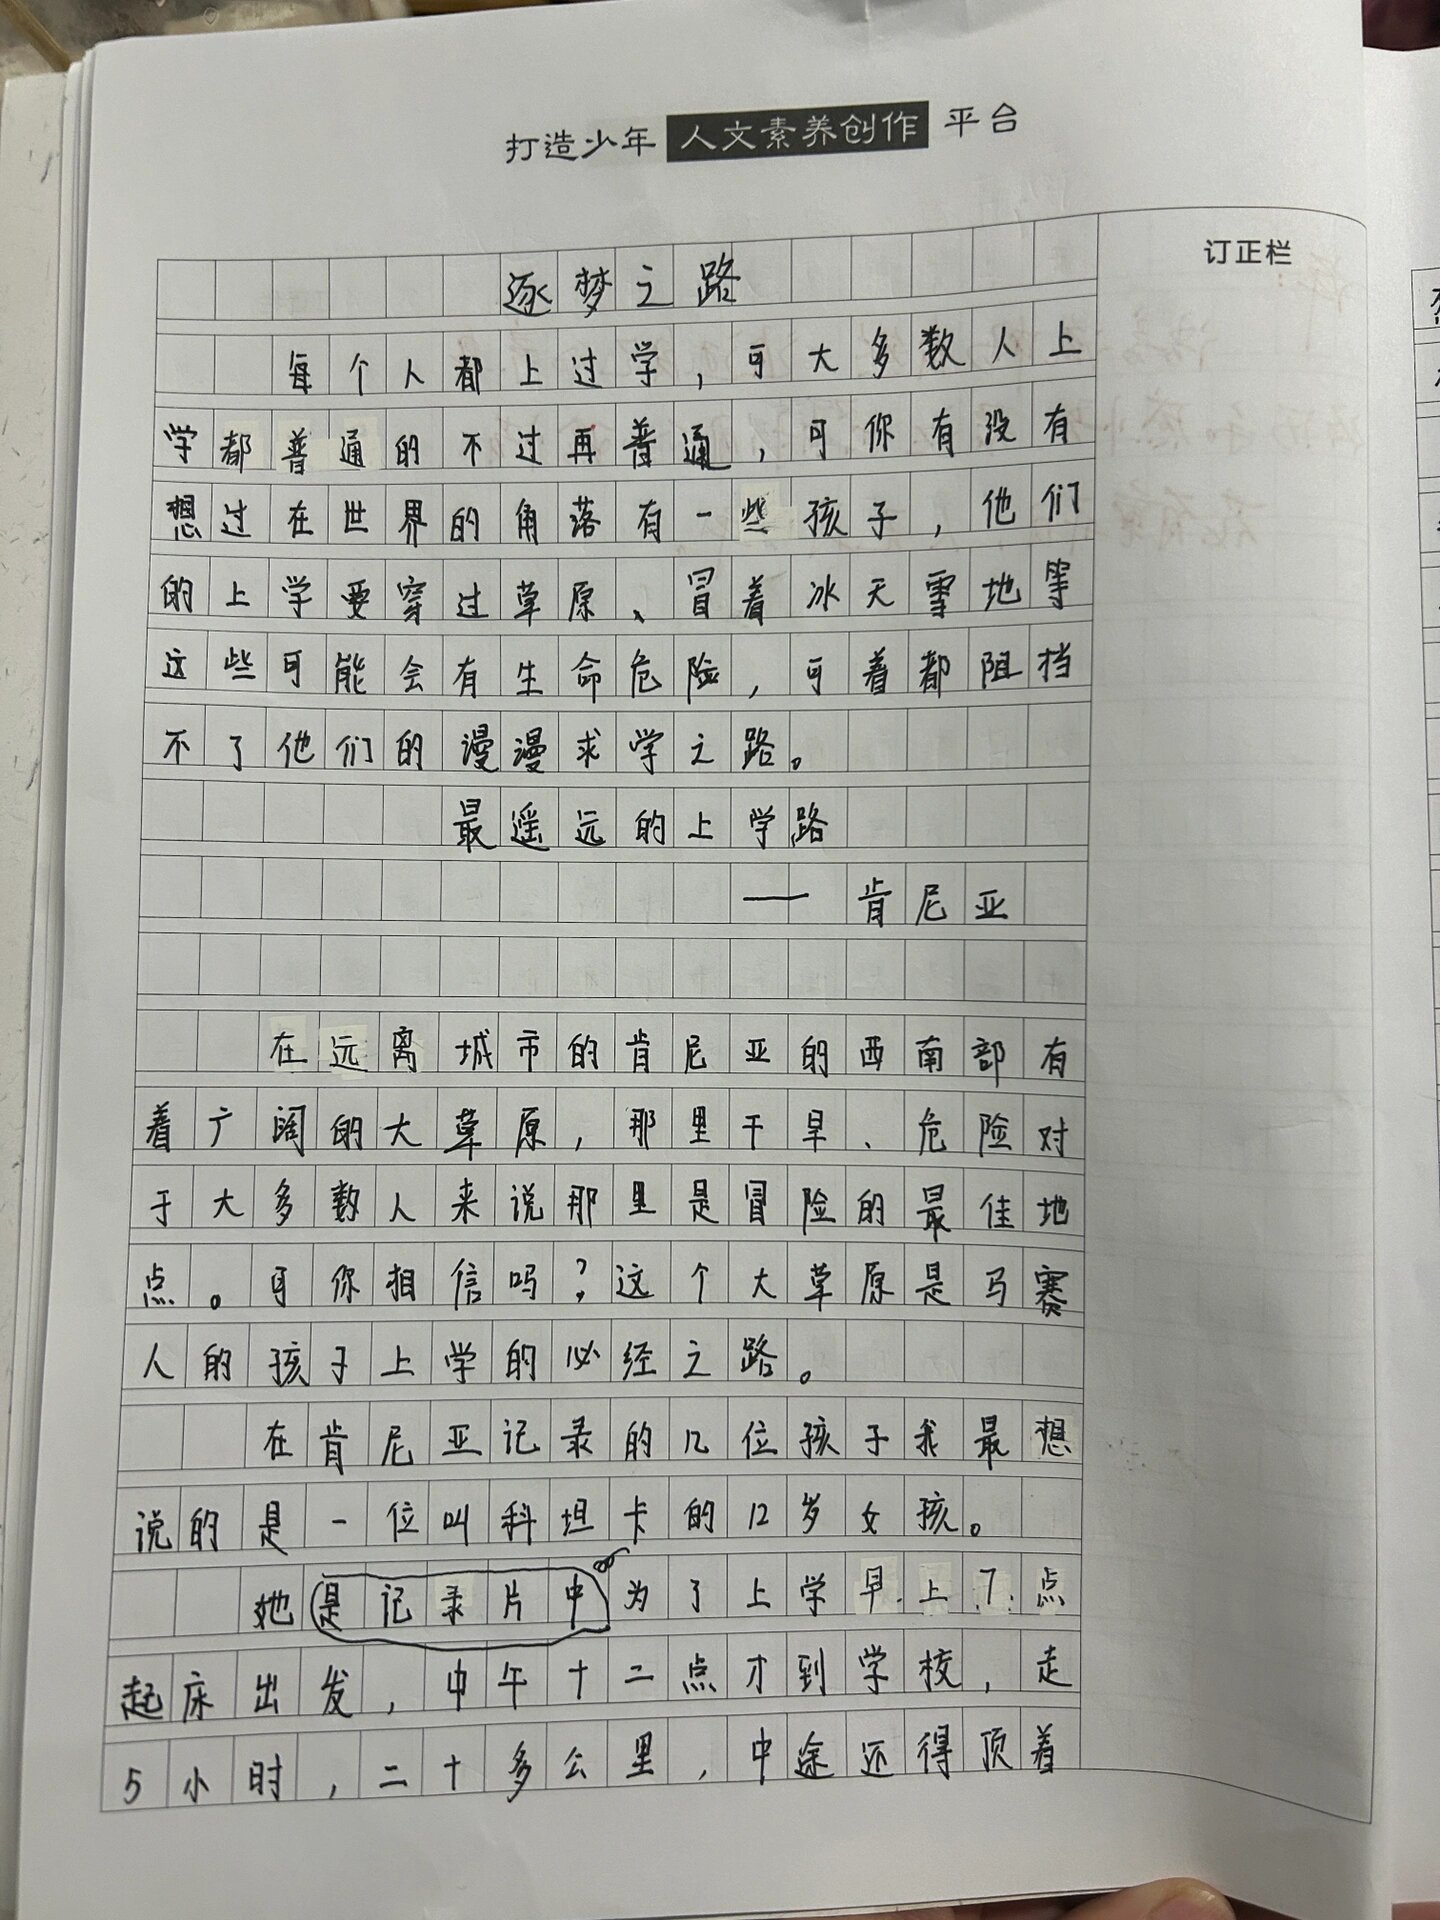 打造少年 人文素养创作 平台
订正栏
逐梦之路
每个人都上过学，可大多数人上
学都普通的不过再普通，可你有没有
想过在世界的角落有一些孩子，他们
的上学要穿过草原、冒着冰天雪地等
这些可能会有生命危险，可着都阻挡
不了他们的漫漫求学之路。
最遥远的上学路
——肯尼亚
在远离城市的肯尼亚的西南部有
着广阔的大草原，那里干旱、危险对
于大多数人来说那里是冒险的最佳地
点。可你相信吗？这个大草原是马赛
人的孩子上学的必经之路。
在肯尼亚记录的几位孩子我最想
说的是一位叫科坦卡的12岁女孩。
她是记录片中为了上学早上7点
起床出发，中午十二点才到学校，走
5小时，二十多公里，中途还得顶着